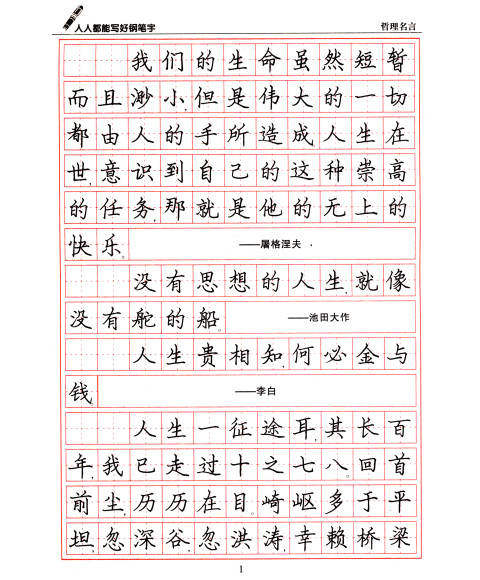 人人都能写好钢笔字 哲理名言
我们的生命虽然短暂
而且渺小,但是伟大的一切
都由人的手所造成,人生在
世,意识到自己的这种崇高
的任务,那就是他的无上的
快乐。 ——屠格涅夫
没有思想的人生,就像
没有舵的船。 ——池田大作
人生贵相知,何必金与
钱。 ——李白
人生一征途耳,其长百
年,我已走过十之七八。回首
前尘,历历在目。崎岖多于平
坦,忽深谷,忽洪涛,幸赖桥梁
1